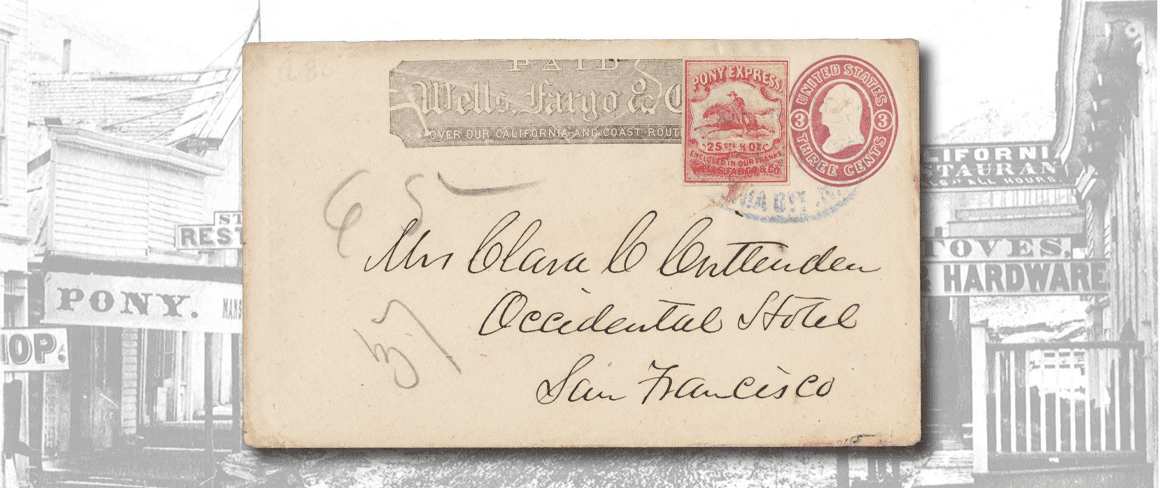 PAID
Wells, Fargo & C
OVER OUR CALIFORNIA AND COAST ROUT
PONY EXPRESS
25 CTS ½ OZ.
ENCLOSED IN OUR FRANKS
WELLS, FARGO & CO.
UNITED STATES
3 3
THREE CENTS
65
Mrs Clara C Crittenden
Occidental Hotel
San Francisco
ST
REST
PONY.
MANS
OP.
LIFORNI
STAURAN
ALL HOURS
TOVES,
& HARDWARE